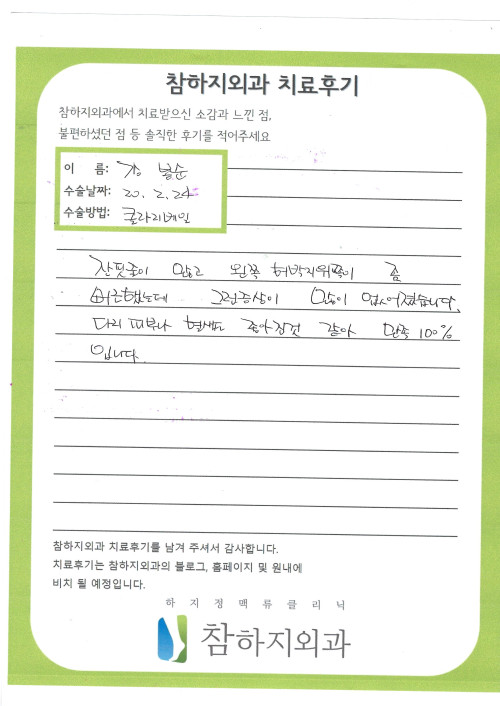 참하지외과 치료후기
참하지외과에서 치료받으신 소감과 느낀 점,
불편하셨던 점 등 솔직한 후기를 적어주세요
이 름: 강
수술날짜: 20. 2. 24
수술방법: 클라리베인
잔핏줄이 많고 왼쪽 허벅지위쪽이 좀
뻐근했는데 그런증상이 많이 없어졌습니다.
다리 피부나 형색도 좋아진것 같아 만족 100%
입니다.
참하지외과 치료후기를 남겨 주셔서 감사합니다.
치료후기는 참하지외과의 블로그, 홈페이지 및 원내에
비치 될 예정입니다.
하지정맥류클리닉
참하지외과